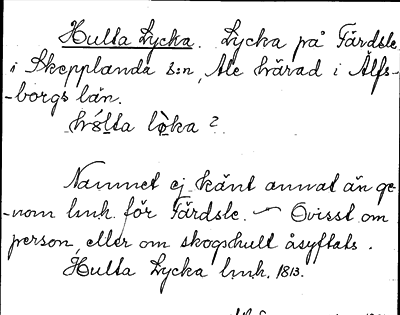 Hulta Lycka. Lycka på Färdsle
i Skepplanda s:n, Ale härad i Älfs-
-borgs län.
hólta lòka?
Namnet ej känt annat än ge-
-nom lmh. för Färdsle. — Ovisst om
person eller om skogshult åsyftats.
Hulta Lycka lmh. 1813.